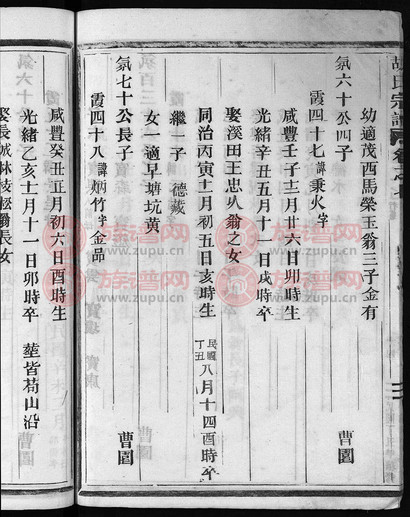 胡氏宗譜
幼適茂西馬榮玉翁三子金有
氛六十公四子 曹園
霞四十七諱秉火字
咸豐壬子十二月廿六日卯時生
光緒辛丑五月十一日戌時卒
娶溪田王忠八翁之女
同治丙寅十二月初五日亥時生 民國丁丑八月十四酉時卒
繼一子 德葳
女一適早塘坑黄
氛七十公長子 曹園
霞四十八諱炳竹字金昂
咸豐癸丑正月初六日酉時生
光緒乙亥十一月十一日卯時卒 塟皆荀山沿
娶長城林枝松翁長女
族谱网
www.zupu.cn